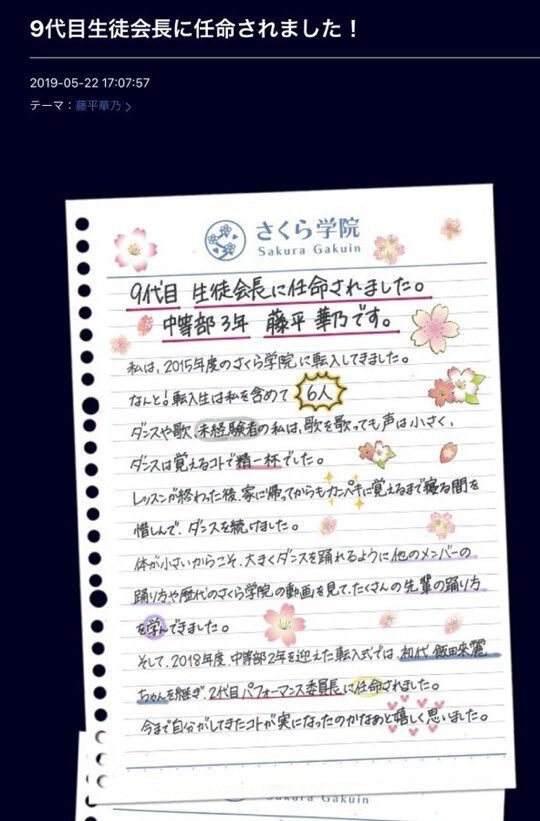 9代目生徒会長に任命されました！
2019-05-22 17:07:57
テーマ：藤平華乃 >
さくら学院
Sakura Gakuin
9代目 生徒会長に任命されました。
中等部3年 藤平 華乃です。
私は、2015年度のさくら学院に転入してきました。
なんと！転入生は私を含めて 6人
ダンスや歌、未経験者の私は、歌を歌っても声は小さく、
ダンスは覚えるコトで精一杯でした。
レッスンが終わった後、家に帰ってからもカンペキに覚えるまで寝る間を
惜しんで、ダンスを続けました。
体が小さいからこそ、大きくダンスを踊れるように他のメンバーの
踊り方や歴代のさくら学院の動画を見て、たくさんの先輩の踊り方
を学んできました。
そして、2018年度、中等部2年を迎えた転入式では、初代 飯田來麗
ちゃんを継ぎ、2代目パフォーマンス委員長に任命されました。
今まで自分がしてきたコトが実になったのかなあと嬉しく思いました。
Sakura Gakuin